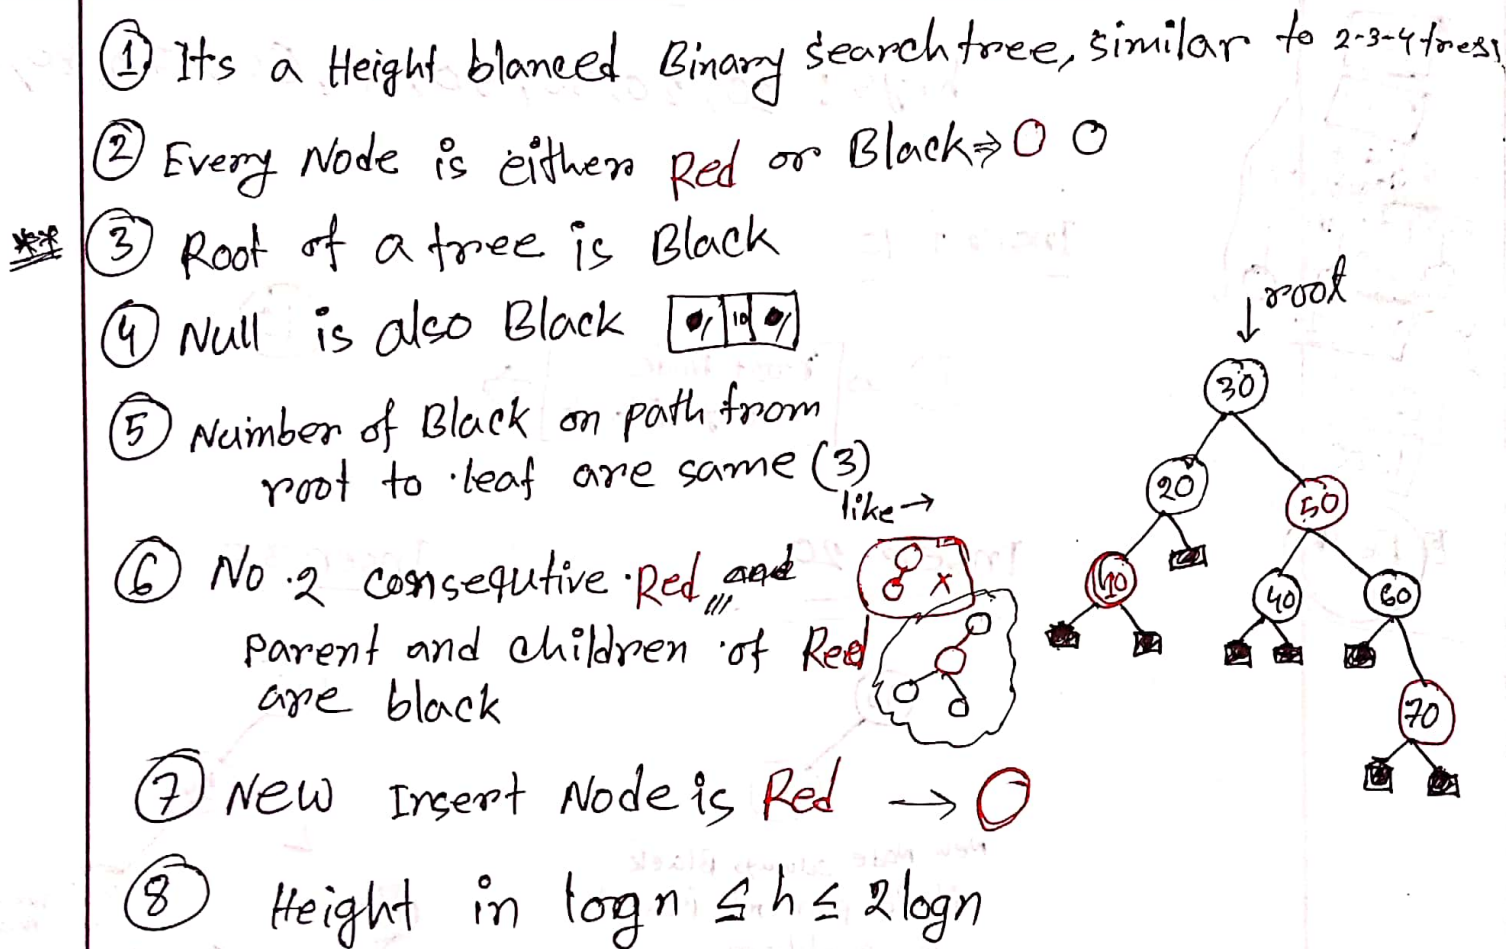 ① Its a Height blanced Binary Search tree, similar to 2-3-4 tress
② Every Node is either Red or Black ⇒ O O
** ③ Root of a tree is Black
④ Null is also Black 10
⑤ Number of Black on path from
root to leaf are same (3)
like →
⑥ No 2 consequtive Red, and
x
Parent and children of Red
are black
⑦ New Insert Node is Red → O
⑧ Height in logn ≤ h ≤ 2logn
↓ root
30
20 50
10 40 60
70